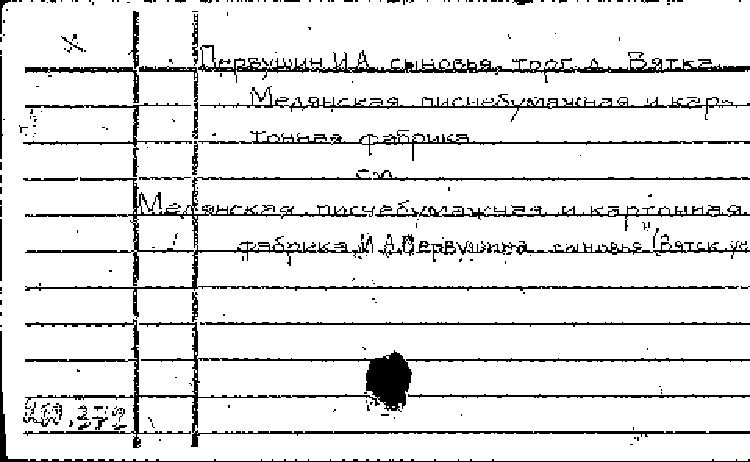 Х
Первушин И.А. сыновья, торг. д. Вятка
Медянская писчебумажная и кар-
тонная фабрика
см.
Медянская писчебумажная и картонная
фабрика И.А. Первушина сыновья (Вятск. у
.372